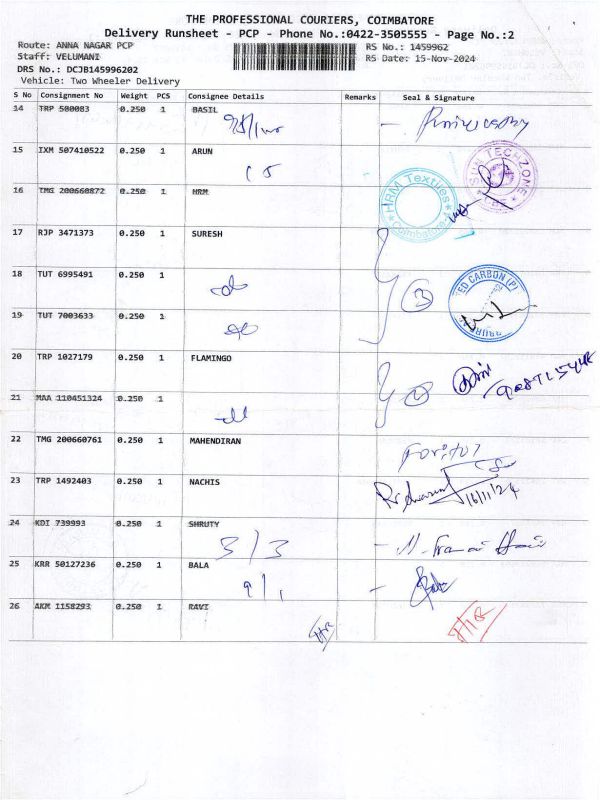 THE PROFESSIONAL COURIERS, COIMBATORE
Delivery Runsheet - PCP - Phone No.:0422-3505555 - Page No.:2
Route: ANNA NAGAR PCP RS No.: 1459962
Staff: VELUMANI RS Date: 15-Nov-2024
DRS No.: DCJB145996202
Vehicle: Two Wheeler Delivery
S No Consignment No Weight PCS Consignee Details Remarks Seal & Signature
14 TRP 500083 0.250 1 BASIL
15 IXM 507410522 0.250 1 ARUN
SUN TECHZONE
16 TMG 200660872 0.250 1 HRM
HRM Textiles
Coimbatore-4
17 RJP 3471373 0.250 1 SURESH
18 TUT 6995491 0.250 1
3
CARBON (P)
19 TUT 7003633 0.250 1
20 TRP 1027179 0.250 1 FLAMINGO
21 MAA 110451324 0.250 1
22 TMG 200660761 0.250 1 MAHENDIRAN
23 TRP 1492403 0.250 1 NACHIS
16/11/24
24 KDI 739993 0.250 1 SHRUTY
3/3
25 KRR 50127236 0.250 1 BALA
9/1
26 AKM 1158293 0.250 1 RAVI